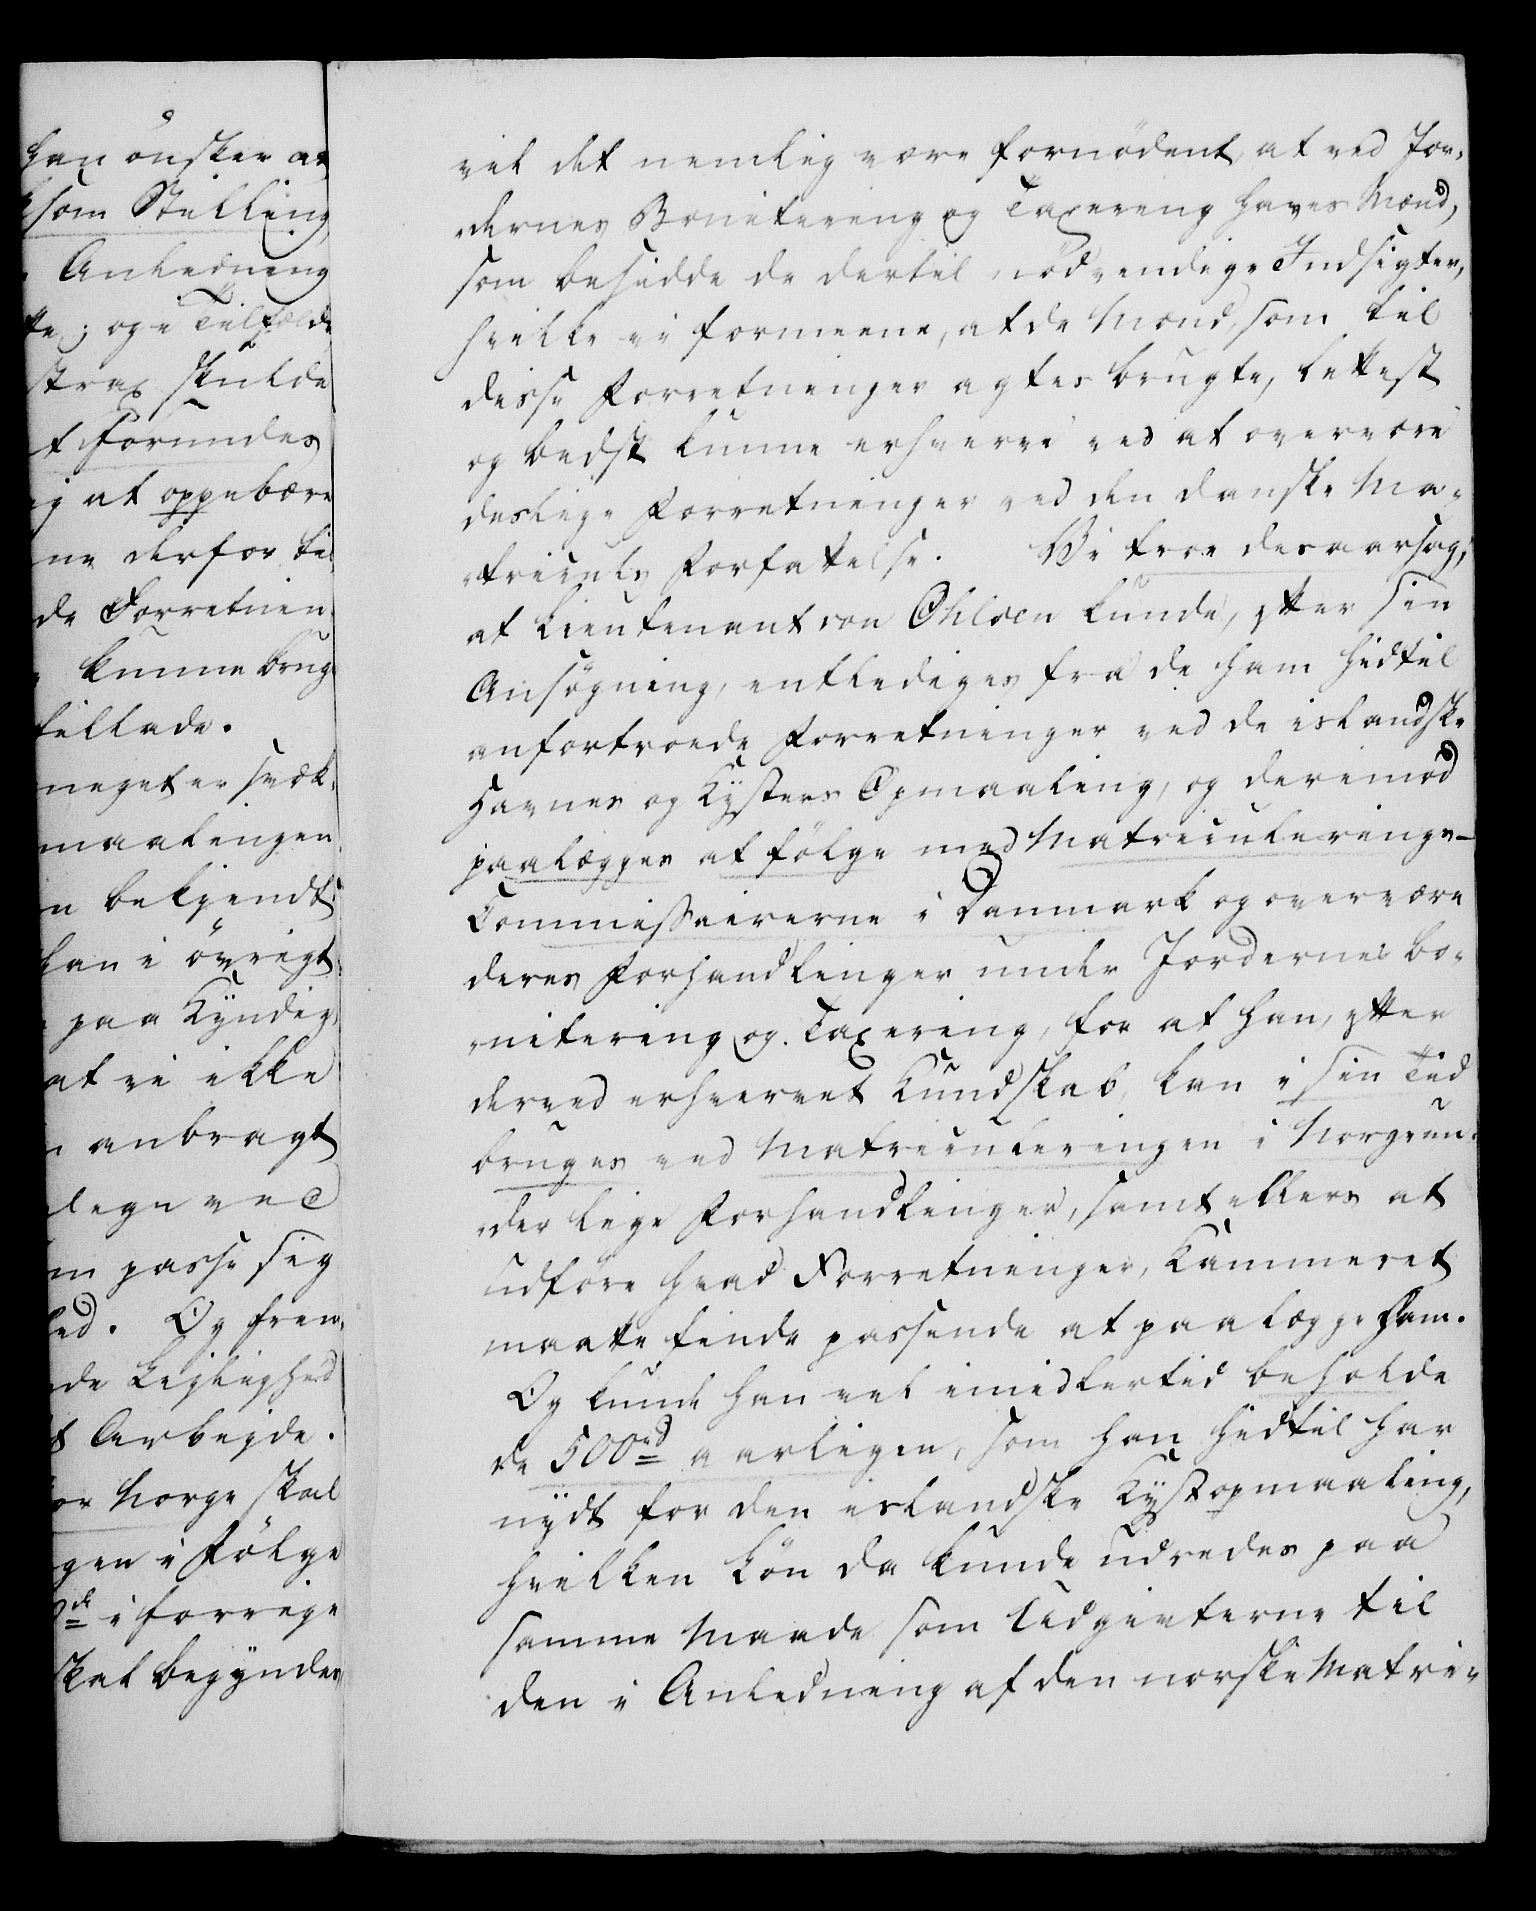 han önsker at
som Stilling
Anledning
te; og i Tilfælde
strax skulde
t forundes
ig at oppebære
ne derfor til
de Forretnin
kunne brug
tillade.
meget er svæk,
maalingen
n bekjendt
han i övrigt
paa Kyndig,
at vi ikke
anbragt
degn ved
m passe sig
ed. Og frem,
de Lejlighed
t Arbejde.
or Norge skal
gen i Fölge
de i forrige
skal begyndes,
vil det nemlig være fornödent, at ved Jor,
dernes Bonitering og Taxering haves Mænd,
som besidde de dertil nödvendige Indsigter,
hvilke vi formeene, at de Mænd, som til
disse Forretninger agtes brugte, lettest
og bedst kunne erhverve ved at overvære
deslige Forretninger ved den danske Ma-
triculs Forfattelse. Vi troe desaarsag,
at Lieutenant von Ohlsen kunde, efter sin
Ansögning, entlediges fra de ham hidtil
anfortroede Forretninger ved de islandske
Havnes og Kysters Opmaaling, og derimod
paalægges at fölge med Matriculerings-
Commissairerne i Danmark og overvære
deres Forhandlinger under Jordernes Bo-
nitering og Taxering, for at han, efter
derved erhvervet Kundskab, kan i sin Tid
bruges ved Matriculeringen i Norge un-
der lige Forhandlinger, samt ellers at
udföre hvad Forretninger, Kammeret
maatte finde passende at paalægge ham.
Og kunde han vel imidlertid beholde
de 500 rd aarligen, som han hidtil har
nydt for den islandske Kystopmaaling,
hvilken Lön da kunde udredes paa
samme Maade som Udgivterne til
den i Anledning af den norske Matri-